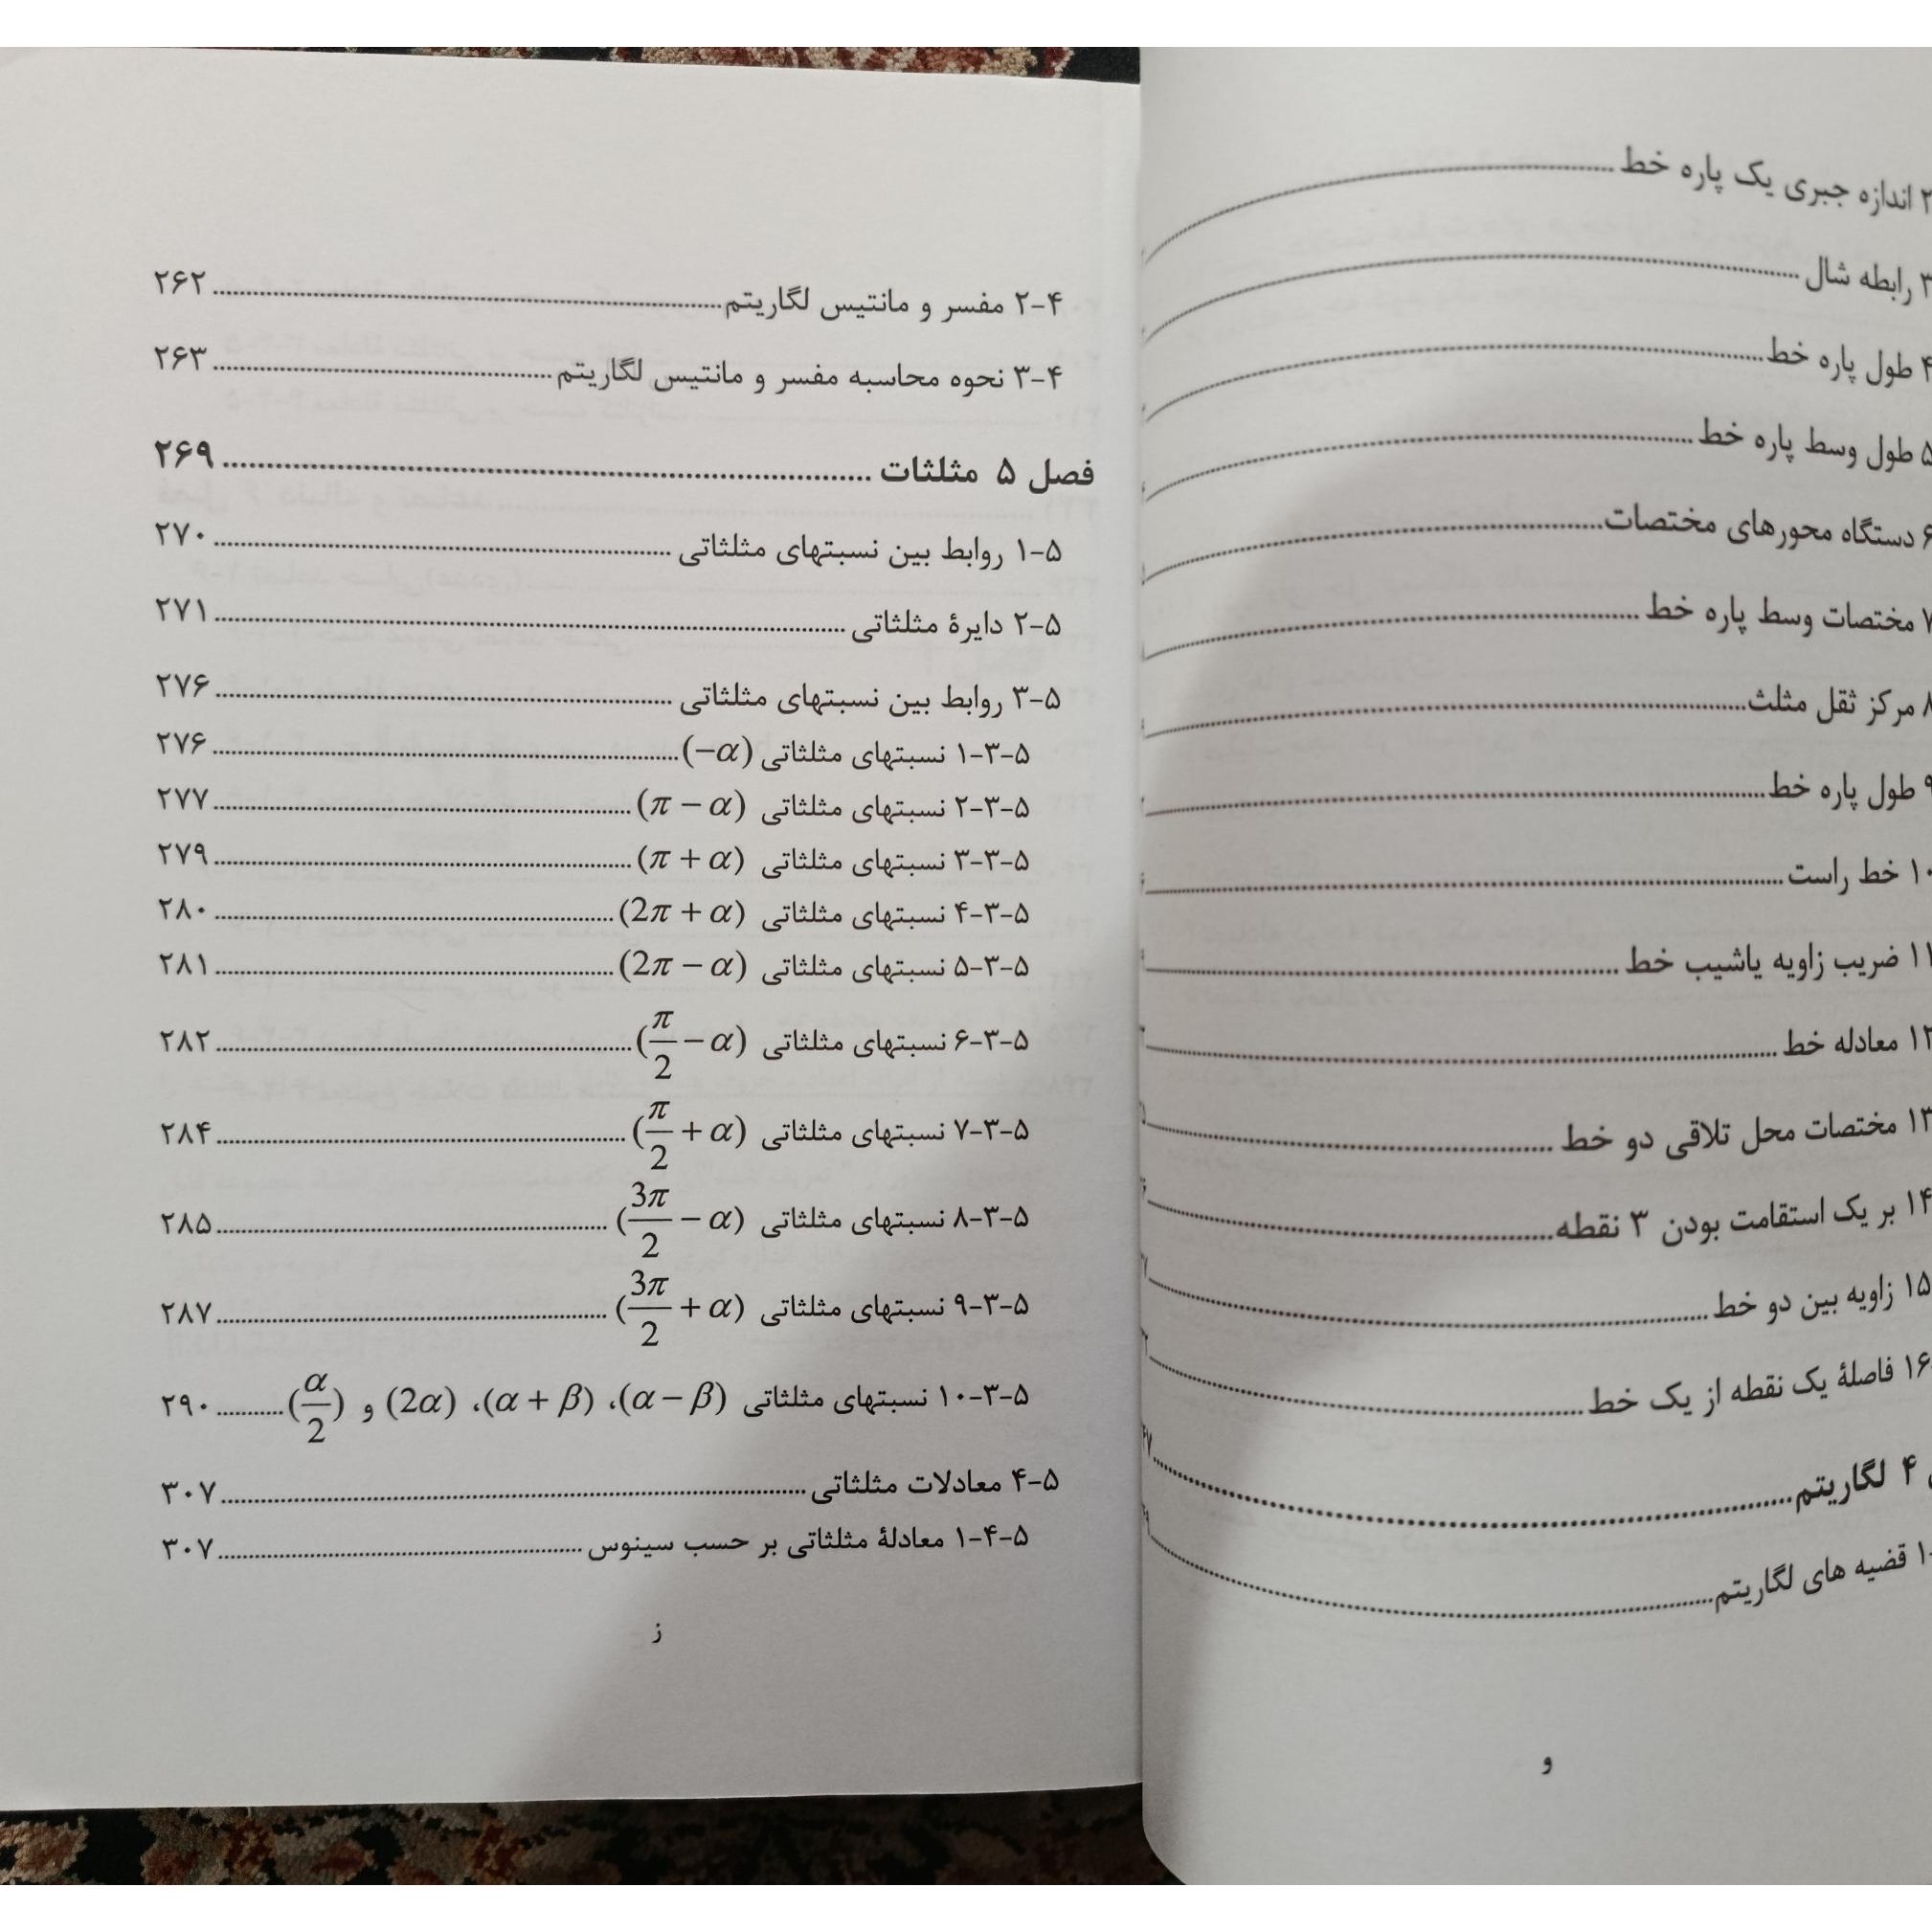 ۲ اندازه جبری یک پاره خط
۳ رابطه شال
۴ طول پاره خط
۵ طول وسط پاره خط
۶ دستگاه محورهای مختصات
۷ مختصات وسط پاره خط
۸ مرکز ثقل مثلث
۹ طول پاره خط
۱۰ خط راست
۱۱ ضریب زاویه یاشیب خط
۱۲ معادله خط
۱۳ مختصات محل تلاقی دو خط
۱۴ بر یک استقامت بودن ۳ نقطه
۱۵ زاویه بین دو خط
۱۶ فاصلۀ یک نقطه از یک خط
۴ لگاریتم
۱ قضیه های لگاریتم
و
۴-۲ مفسر و مانتیس لگاریتم ۲۶۲
۴-۳ نحوه محاسبه مفسر و مانتیس لگاریتم ۲۶۳
فصل ۵ مثلثات ۲۶۹
۵-۱ روابط بین نسبتهای مثلثاتی ۲۷۰
۵-۲ دایرۀ مثلثاتی ۲۷۱
۵-۳ روابط بین نسبتهای مثلثاتی ۲۷۶
۵-۳-۱ نسبتهای مثلثاتی (−α) ۲۷۶
۵-۳-۲ نسبتهای مثلثاتی (π − α) ۲۷۷
۵-۳-۳ نسبتهای مثلثاتی (π + α) ۲۷۹
۵-۳-۴ نسبتهای مثلثاتی (2π + α) ۲۸۰
۵-۳-۵ نسبتهای مثلثاتی (2π − α) ۲۸۱
۵-۳-۶ نسبتهای مثلثاتی (π/2 − α) ۲۸۲
۵-۳-۷ نسبتهای مثلثاتی (π/2 + α) ۲۸۴
۵-۳-۸ نسبتهای مثلثاتی (3π/2 − α) ۲۸۵
۵-۳-۹ نسبتهای مثلثاتی (3π/2 + α) ۲۸۷
۵-۳-۱۰ نسبتهای مثلثاتی (α − β)، (α + β)، (2α) و (α/2) ۲۹۰
۵-۴ معادلات مثلثاتی ۳۰۷
۵-۴-۱ معادلۀ مثلثاتی بر حسب سینوس ۳۰۷
ز